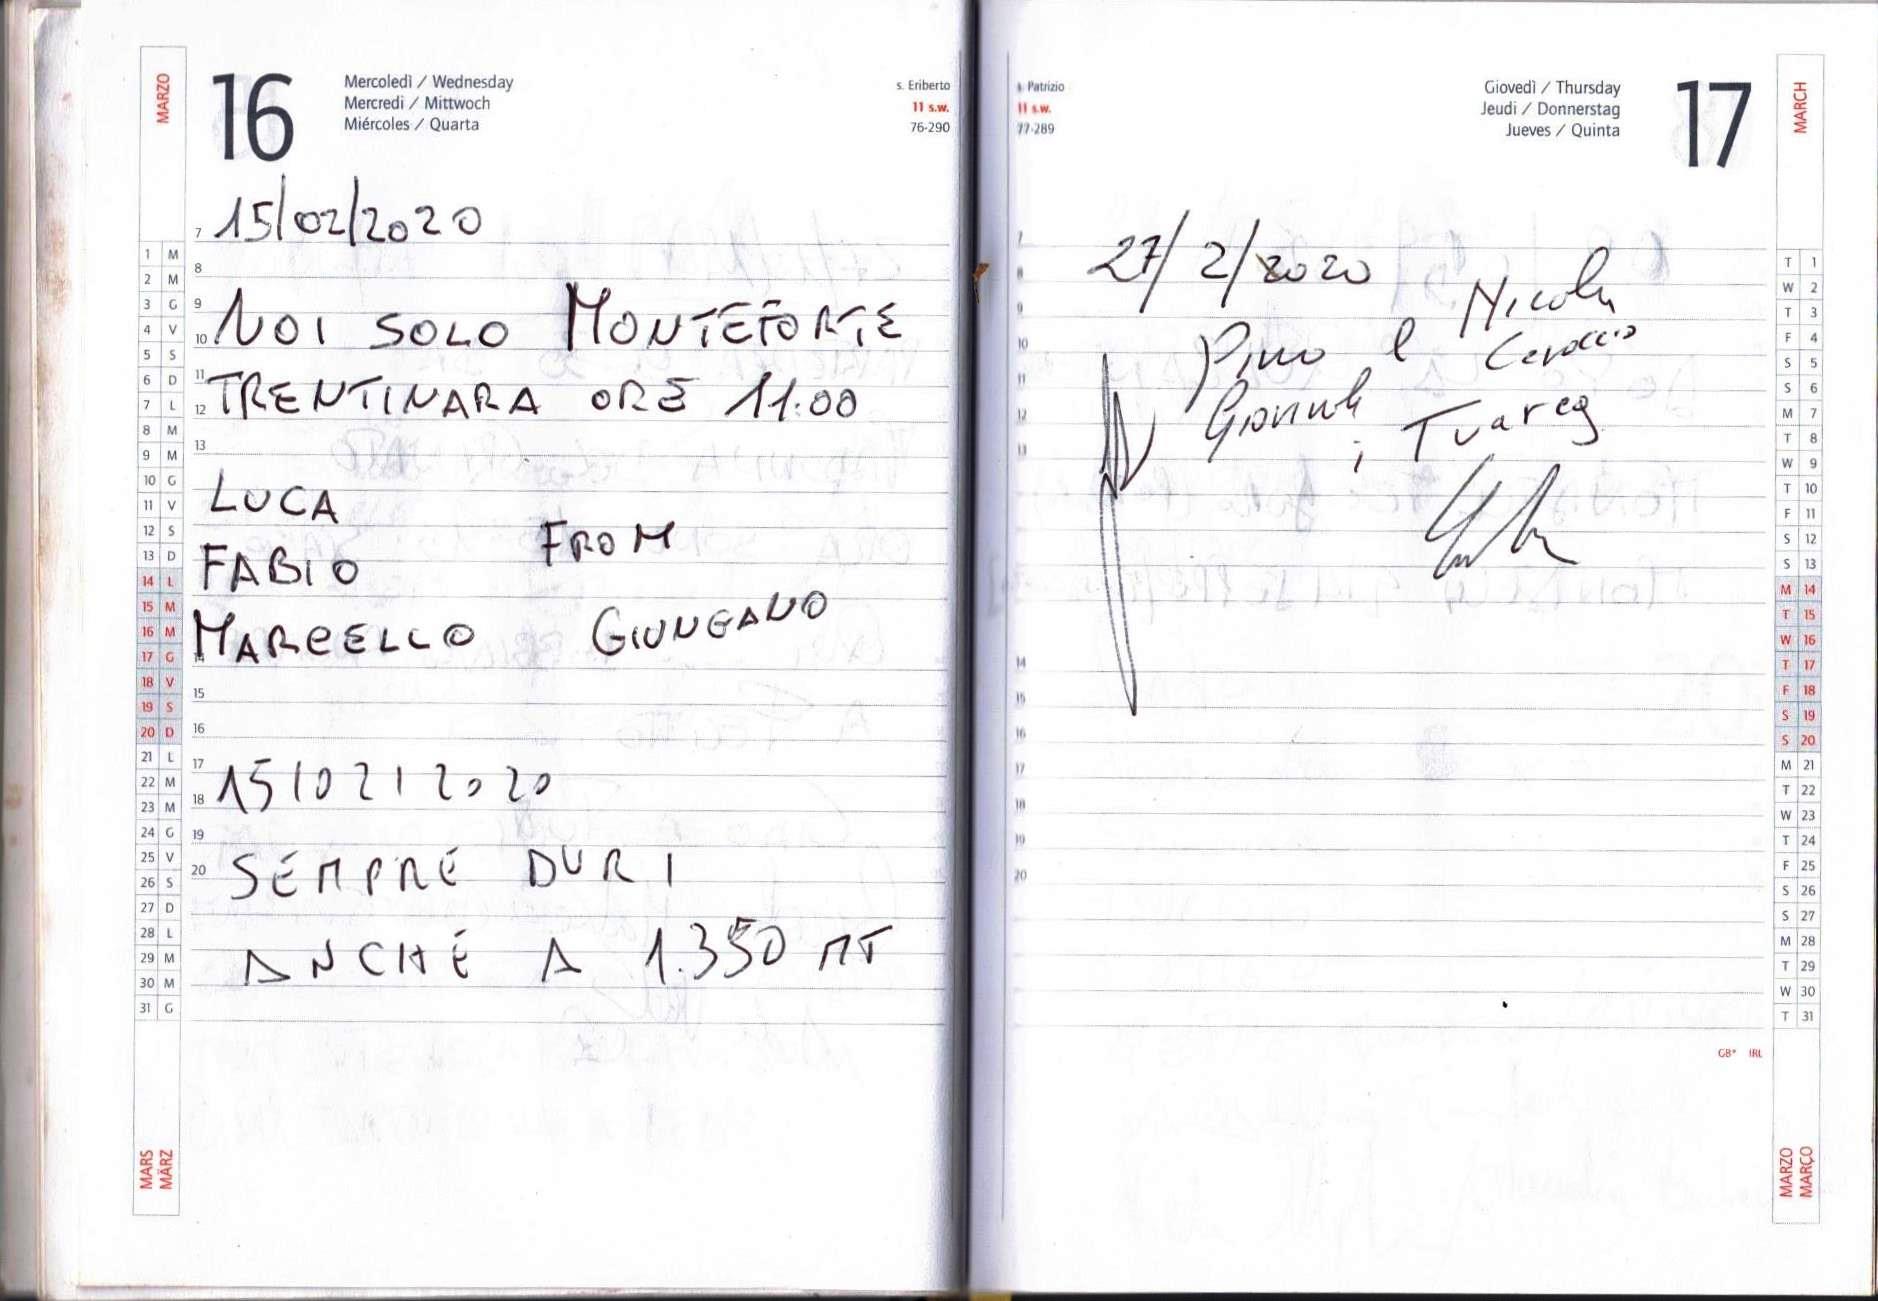 MARZO
16
Mercoledì / Wednesday
Mercredi / Mittwoch
Miércoles / Quarta
s. Eriberto
11 s.w.
76-290
15/02/2020
NOI SOLO MONTEFORTE
TRENTINARA ORE 11:00
LUCA
FROM
FABIO
MARCELLO GIUNGANO
15/02/2020
SEMPRE DURI
ANCHE A 1.350 MT
7
8
9
10
11
12
13
14
15
16
17
18
19
20
1 M
2 M
3 G
4 V
5 S
6 D
7 L
8 M
9 M
10 G
11 V
12 S
13 D
14 L
15 M
16 M
17 G
18 V
19 S
20 D
21 L
22 M
23 M
24 G
25 V
26 S
27 D
28 L
29 M
30 M
31 G
MARS
MÄRZ
s. Patrizio
11 s.w.
77-289
Giovedì / Thursday
Jeudi / Donnerstag
Jueves / Quinta
17
MARCH
27/2/2020
Pino e Nicola
i Tuareg
7
8
9
10
11
12
13
14
15
16
17
18
19
20
T 1
W 2
T 3
F 4
S 5
S 6
M 7
T 8
W 9
T 10
F 11
S 12
S 13
M 14
T 15
W 16
T 17
F 18
S 19
S 20
M 21
T 22
W 23
T 24
F 25
S 26
S 27
M 28
T 29
W 30
T 31
GB* IRL
MARZO
MARÇO